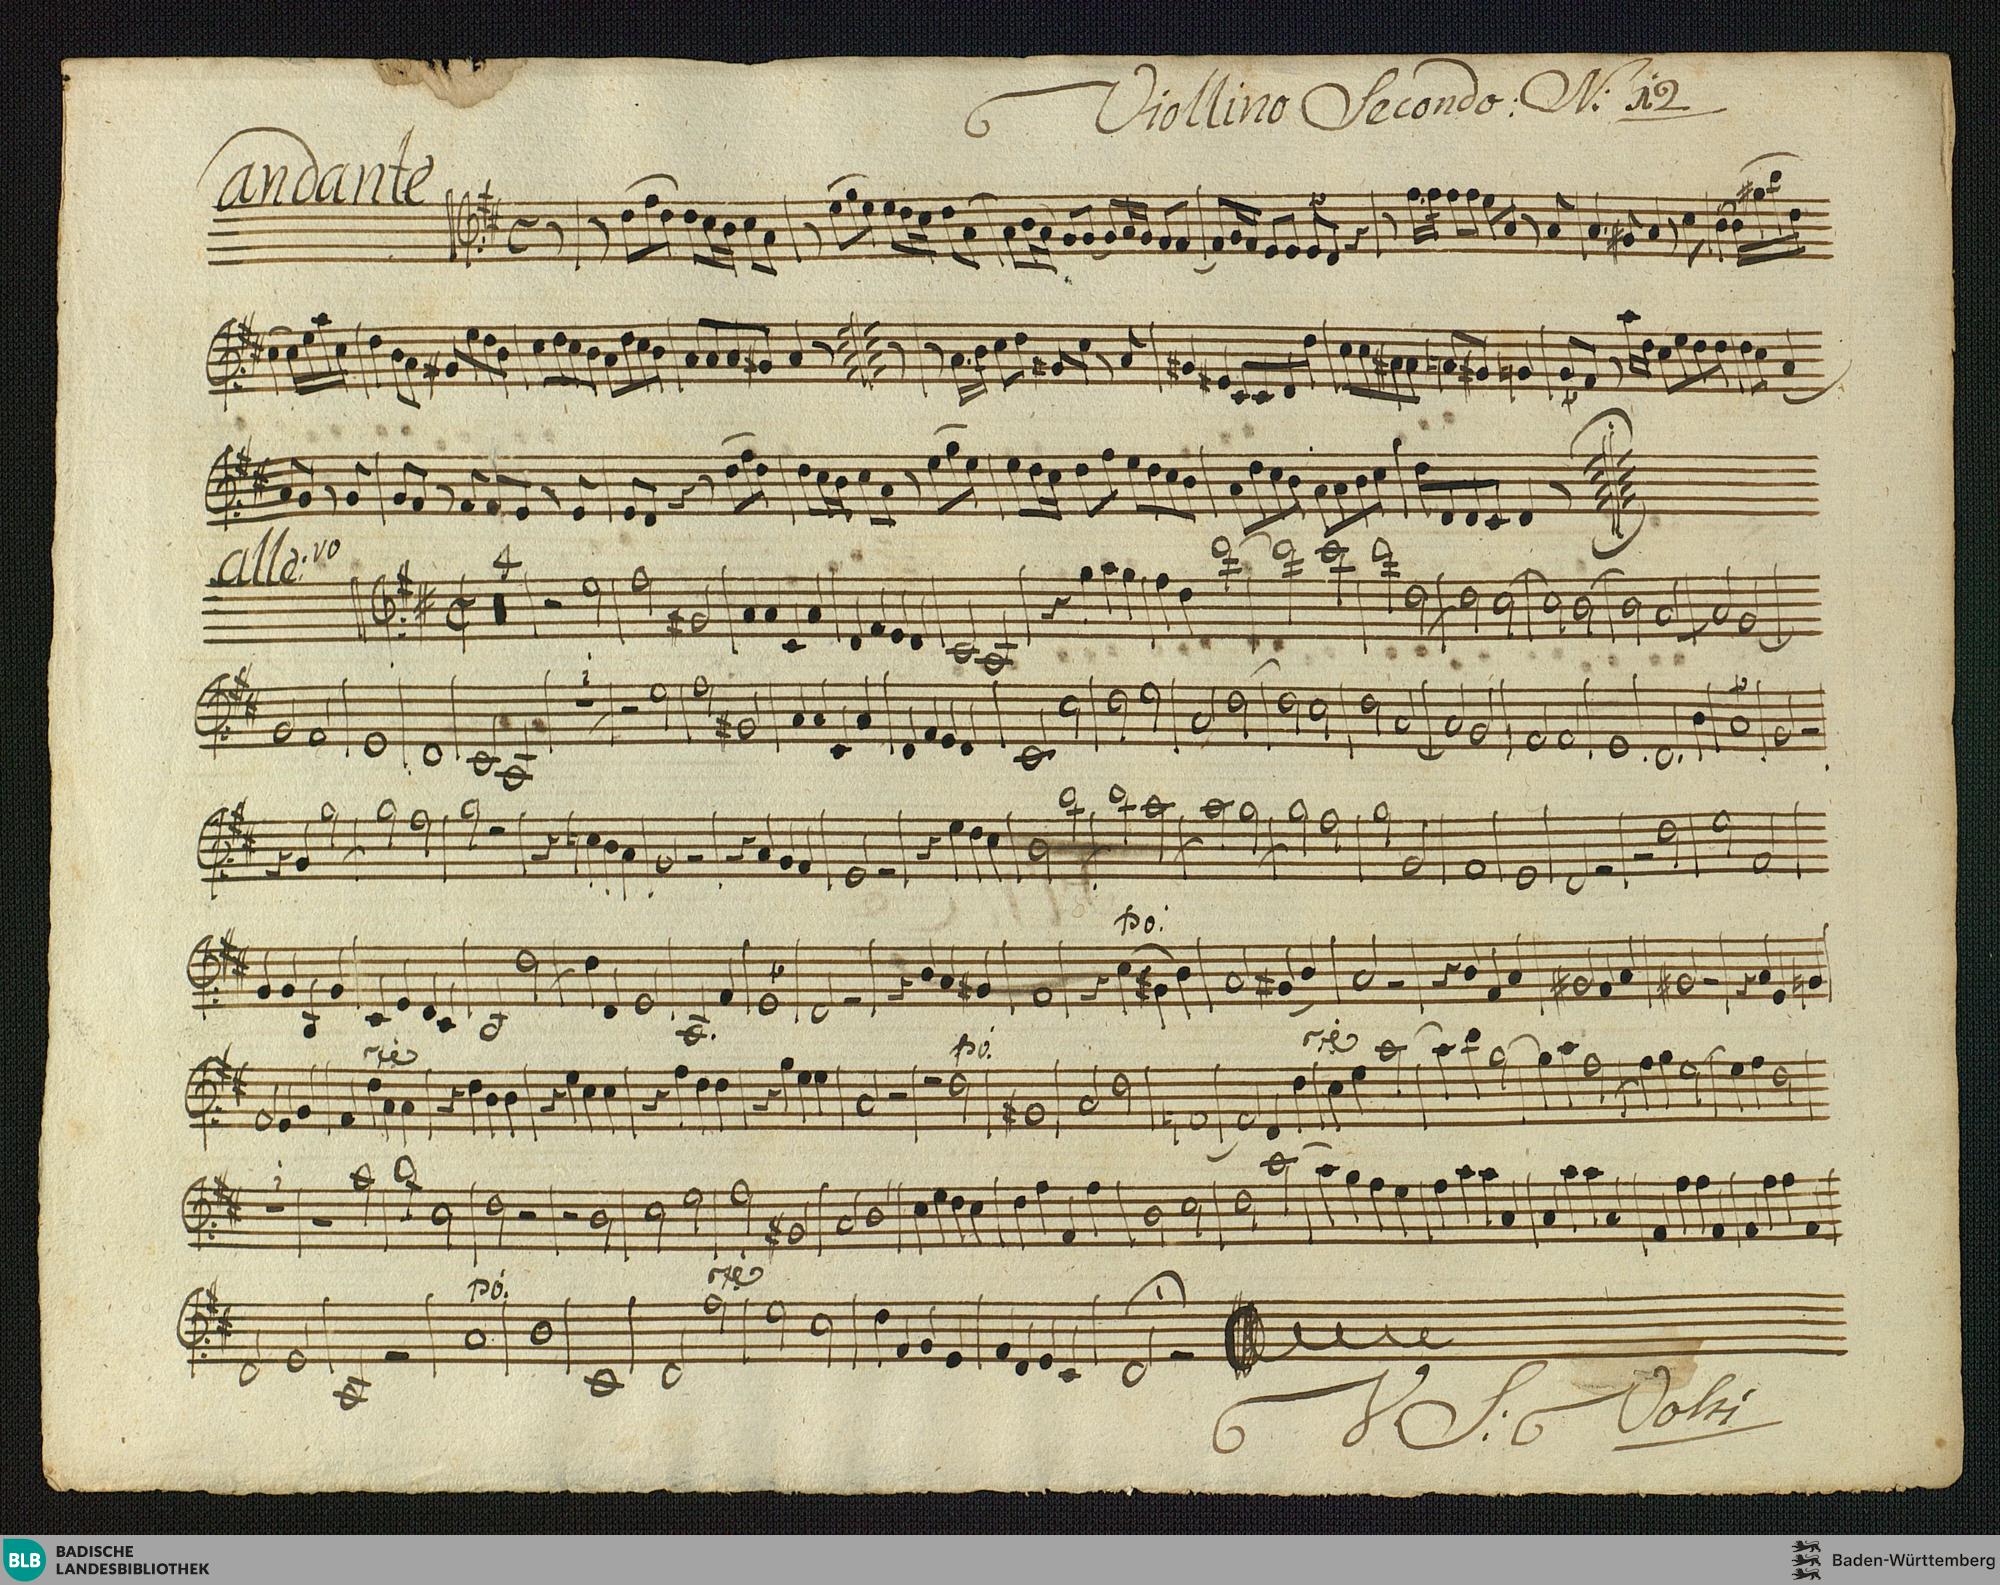 Viollino Secondo: N: 12
andante
alla: vo
4
po:
po:
po:
V S: Volti
BLB BADISCHE LANDESBIBLIOTHEK
Baden-Württemberg